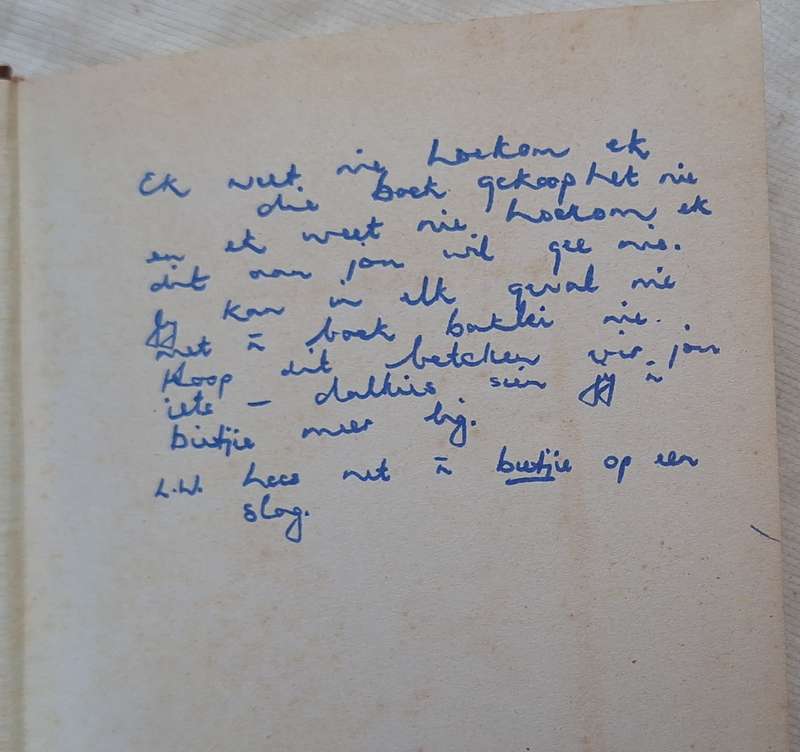 Ek weet nie hoekom ek
die boek gekoop het nie
en ek weet nie hoekom ek
dit aan jou wil gee nie.
Jy kan in elk geval nie
met 'n boek baklei nie.
Hoop dit beteken vir jou
iets – dalkies sien jy 'n
bietjie meer lig.
L.W. Lees net 'n bietjie op een
slag.